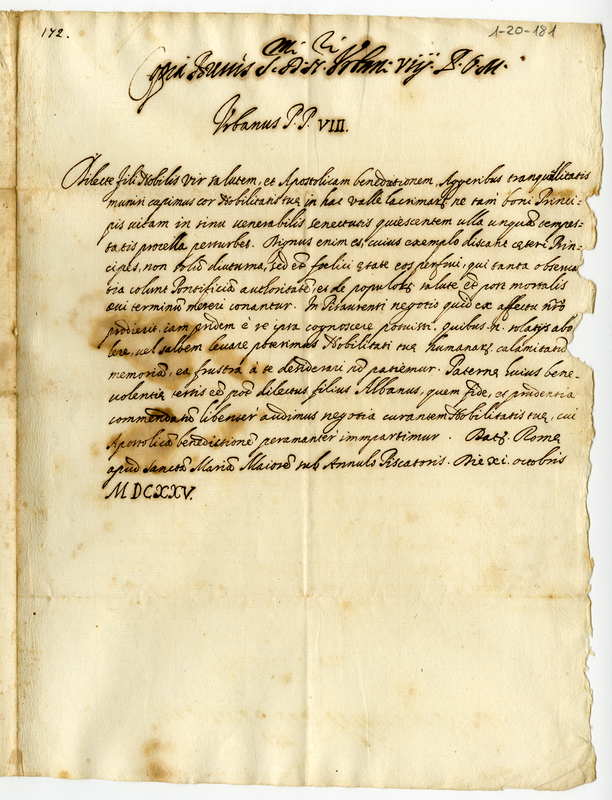 172.
1-20-181
Copia Brevis S. D. N. Urbani viij. P. O. M.
Urbanus P. P. VIII.
Dilecte fili Nobilis vir salutem, et Apostolicam benedictionem, Aggeribus tranquillitatis
muniri cupimus cor Nobilitatis tuę in hac valle lacrimarꝫ ne tam boni Princi-
pis vitam in sinu venerabilis senectutis quiescentem ulla unquā tempes-
tatis procella perturbet. Dignus enim es, cuius exemplo discant cęteri Prin-
cipes, non solū diuturna, sed et fœlici ętate eos perfrui, qui tanta observā
tia colunt Pontificiā authoritatē, et de populorꝫ salute et post mortalis
ęvi terminū mereri conantur. In Pisaurenti negotio quid ex affectu nr̄o
prodierit. iam pridem è re ipsa cognoscere potuisti. quibus .n. solatijs abo
lere, vel saltem levare poterimus Nobilitati tuę humanarꝫ calamitatū
memoriā, ea frustra à te desiderari nō patiemur. Paternę huius bene-
volentię testis eē pot̄ dilectus filius Albanus, quem fide, et prudentia
commendatū libenter audimus negotia curantem Nobilitatis tuę, cui
Apostolicā benedictionē peramanter immpartimur. Datꝫ Romę
apud Sanctā Mariā Maiorē sub Annulo Piscatoris. Die xi. octobris
M DCXXV.